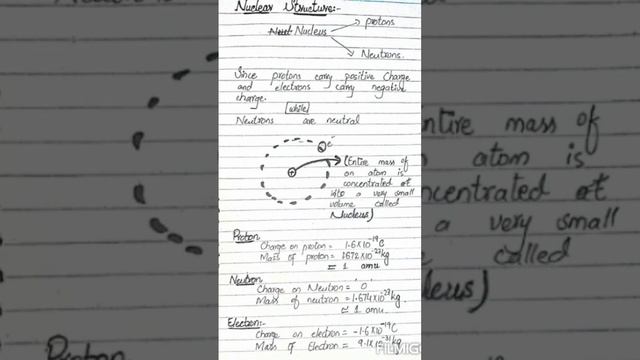 Nuclear Structure:-
Nucleus
protons
Neutrons.
Since protons carry positive charge
and electrons carry negative
charge.
[while]
Neutrons are neutral
e⁻
+
(Entire mass of
an atom is
concentrated at
into a very small
volume called
Nucleus)
Proton
Charge on proton = 1.6×10⁻¹⁹C
Mass of proton = 1.672×10⁻²⁷kg
= 1 amu
Neutron
Charge on Neutron = 0
Mass of neutron = 1.674×10⁻²⁷kg.
≃ 1 amu.
Electron:-
Charge on electron = -1.6×10⁻¹⁹C
Mass of Electron = 9.1×10⁻³¹kg
ntire mass of
atom is
ncentrated at
a very small
called
leus)
Proton
FILMIGO